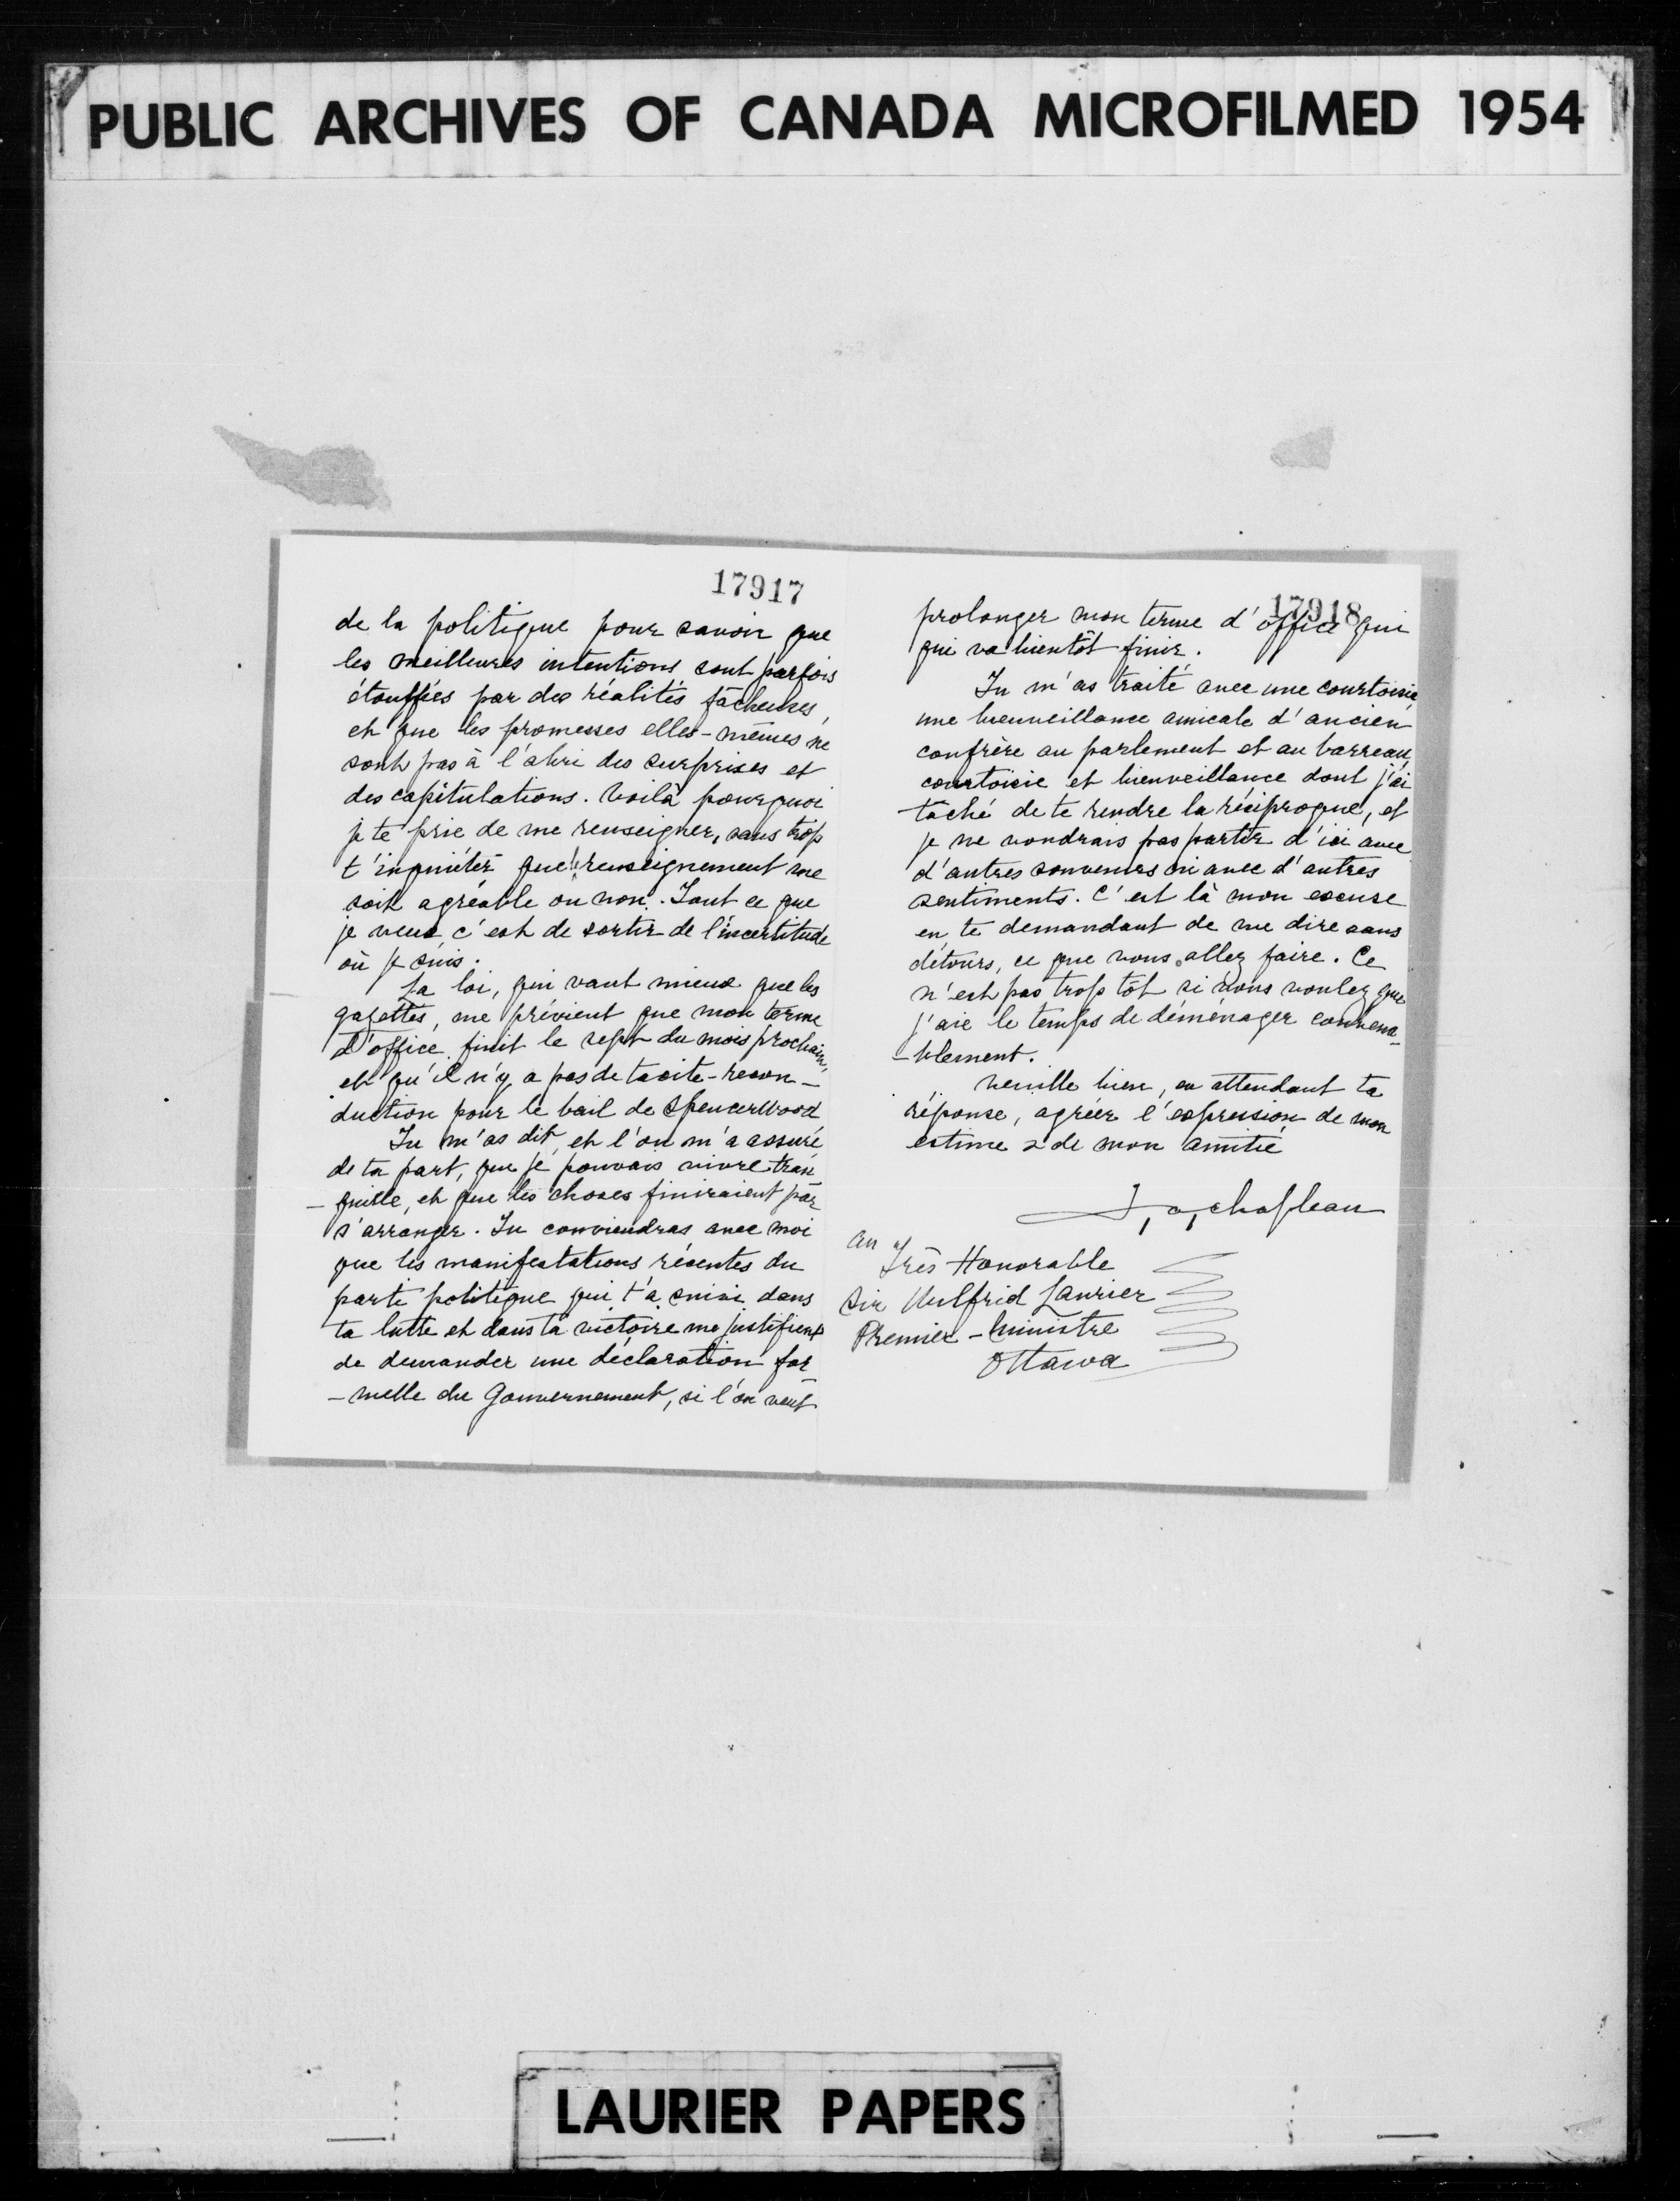 PUBLIC ARCHIVES OF CANADA MICROFILMED 1954
17917
de la politique pour savoir que
les meilleures intentions sont parfois
étouffées par des réalités fâcheuses,
et que les promesses elles-mêmes ne
sont pas à l'abri des surprises et
des capitulations. Voilà pourquoi
je te prie de me renseigner, sans trop
t'inquiéter que renseignement me
soit agréable ou non. Tout ce que
je veux c'est de sortir de l'incertitude
où je suis.
La loi, qui vaut mieux que les
gazettes, me prévient que mon terme
d'office finit le sept du mois prochain,
et qu'il n'y a pas de tacite-recon-
duction pour le bail de Spencerwood
Tu m'as dit, et l'on m'a assuré
de ta part, que je pouvais vivre tran
-quille, et que les choses finiraient par
s'arranger. Tu conviendras avec moi
que les manifestations récentes du
parti politique qui t'a suivi dans
ta lutte et dans ta victoire me justifient
de demander une déclaration for
-melle du Gouvernement, si l'on veut
17918
prolonger mon terme d'office qui
qui va bientôt finir.
Tu m'as traité avec une courtoisie,
une bienveillance amicale d'ancien
confrère au parlement et au barreau,
courtoisie et bienveillance dont j'ai
tâché de te rendre la réciproque, et
je ne voudrais pas partir d'ici avec
d'autres souvenirs ni avec d'autres
sentiments. C'est là mon excuse
en te demandant de me dire sans
détours, ce que vous allez faire. Ce
n'est pas trop tôt si vous voulez que
j'aie le temps de déménager convena-
-blement.
Veuille bien, en attendant ta
réponse, agréer l'expression de mon
estime & de mon amitié
J, a, chapleau
au Très Honorable
Sir Wilfrid Laurier
Premier-Ministre
Ottawa
LAURIER PAPERS